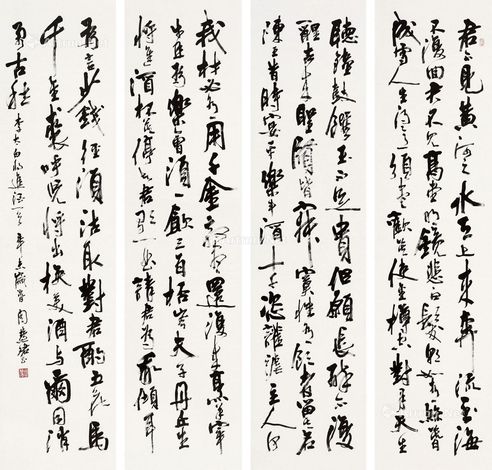 君不見黃河之水天上來奔流至海
不復回君不見高堂明鏡悲白髮朝如青絲暮
成雪人生得意須盡歡莫使金樽空對月天生
我材必有用千金散盡還復來烹羊宰
牛且為樂會須一飲三百杯岑夫子丹丘生
將進酒杯莫停與君歌一曲請君為我傾耳
聽鐘鼓饌玉不足貴但願長醉不復
醒古來聖賢皆寂寞惟有飲者留其名
陳王昔時宴平樂斗酒十千恣歡謔主人何
為言少錢徑須沽取對君酌五花馬
千金裘呼兒將出換美酒與爾同消
萬古愁 李太白將進酒一首 周慧珺